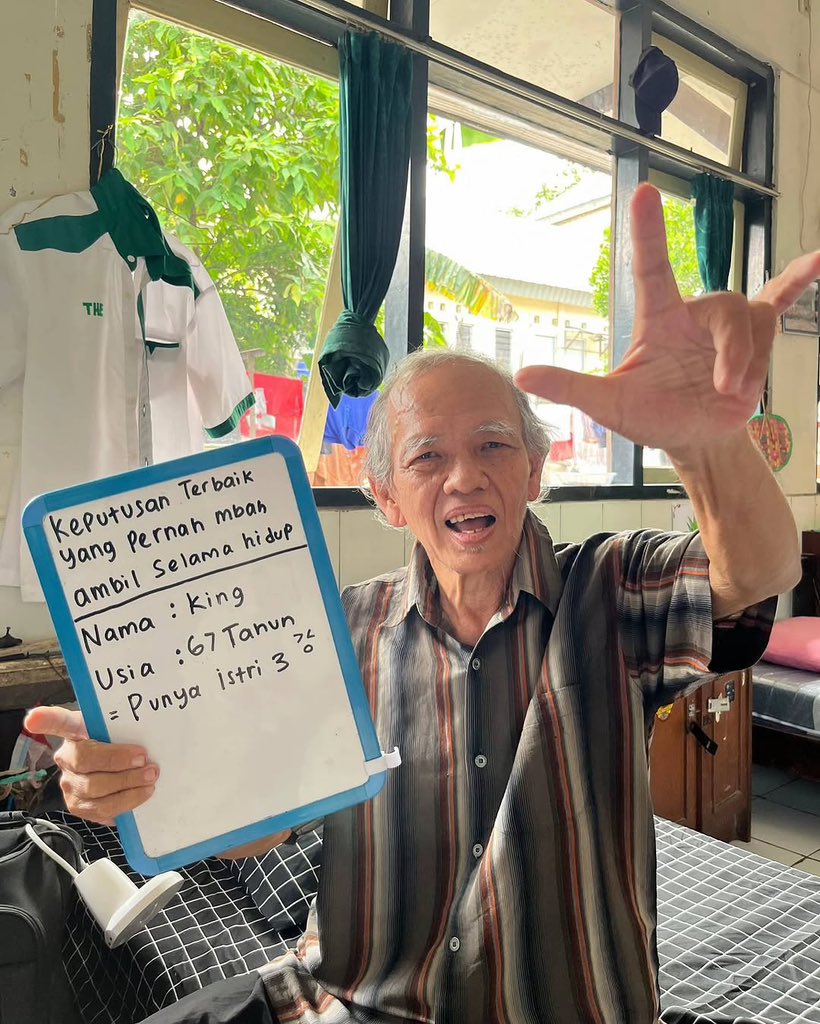 THE
Keputusan Terbaik
yang Pernah mbah
ambil Selama hidup
Nama : King
Usia : 67 Tahun
= Punya istri 3